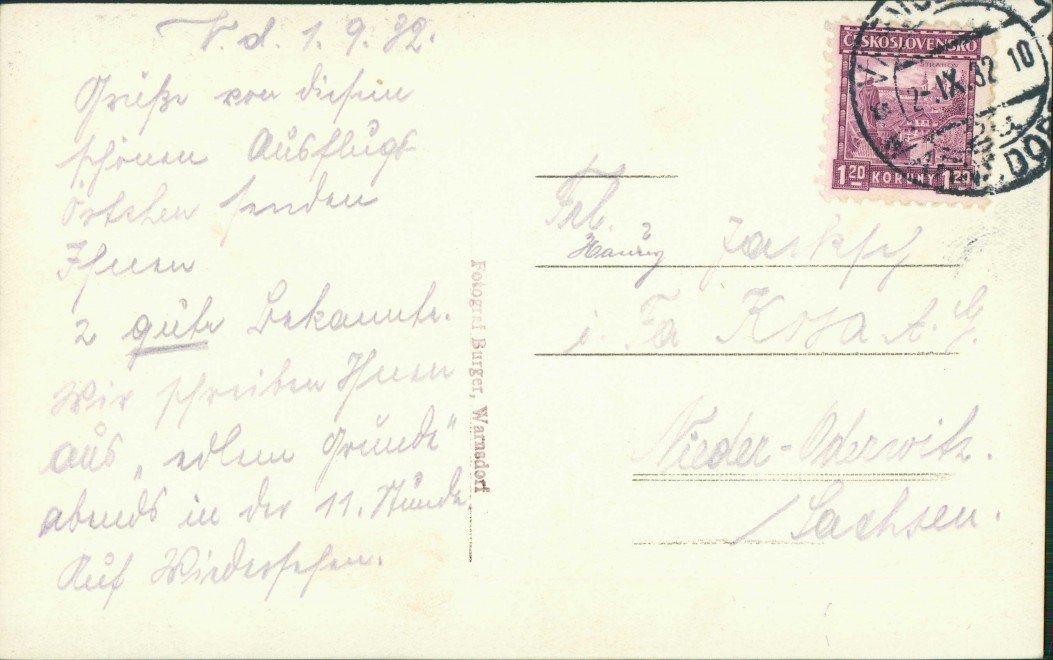 V. d. 1. 9. 32.
Grüße von diesem
schönen Ausflugs-
örtchen senden
Ihnen
2 gute Bekannte.
Wir schreiben Ihnen
aus „edlem Grunde"
abends in der 11. Stunde.
Auf Wiedersehen.
Fotograf Burger, Warnsdorf
ČESKOSLOVENSKO
STRAHOV
1.20 KORUNY 1.20
2.IX.32 10
Frl.
i. Fa Kosa A. G.
Nieder-Oderwitz.
/Sachsen.